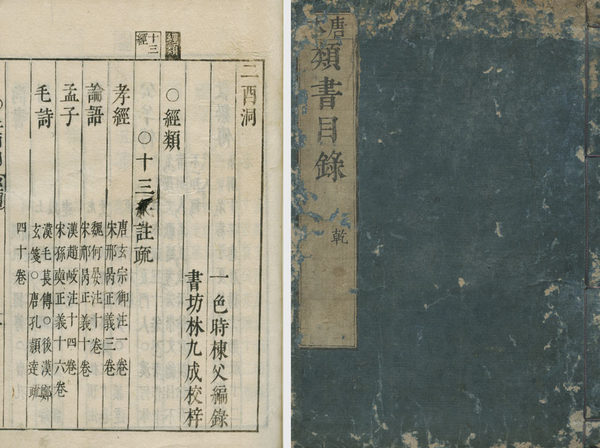 唐本類書目錄
乾
經類
十三經
二酉洞
一色時棟父編錄
書坊林九成校梓
○經類
○十三經註疏
孝經
唐玄宗御注一卷
宋邢昺正義三卷
論語
魏何晏注十卷
宋邢昺正義十卷
孟子
漢趙岐注十四卷
宋孫奭正義十六卷
毛詩
漢毛萇傳○後漢鄭
玄箋○唐孔穎達疏
四十卷